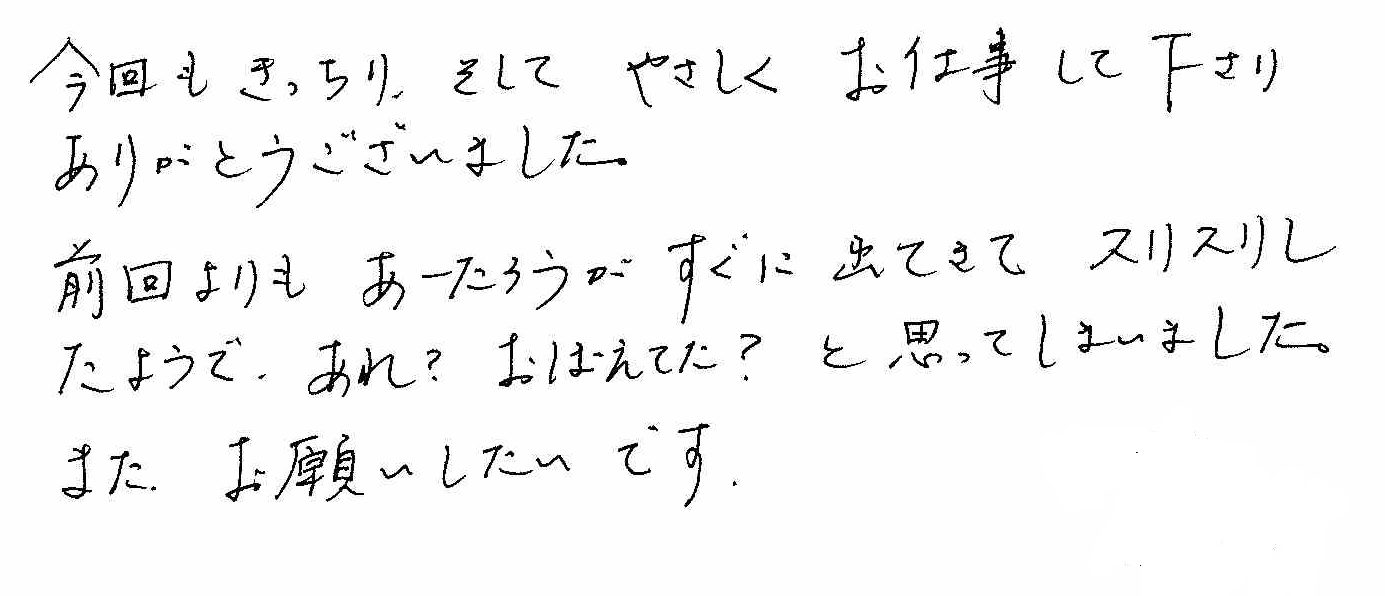 今回も きっちり、そして やさしく お仕事して下さり
ありがとうございました。
前回よりも あーたろうが すぐに 出てきて スリスリし
たようで、あれ? おぼえてた? と思ってしまいました。
また、お願いしたいです.